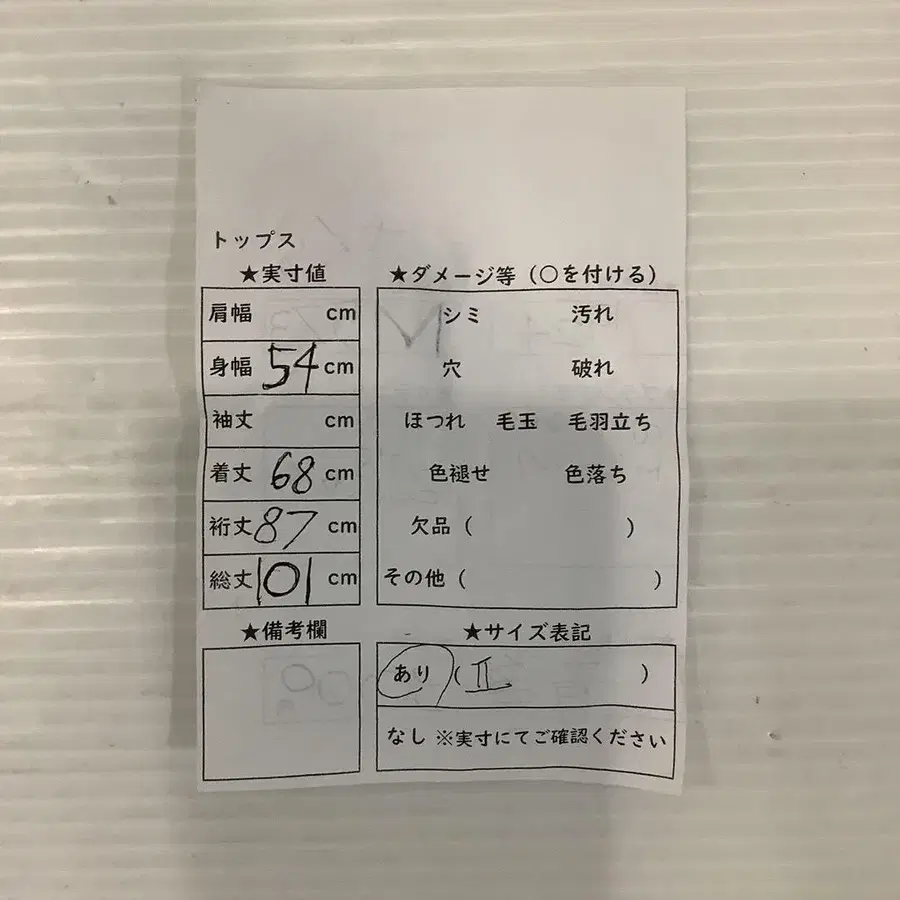 トップス
★実寸値
肩幅 cm
身幅 54 cm
袖丈 cm
着丈 68 cm
裄丈 87 cm
総丈 101 cm
★備考欄
★ダメージ等（○を付ける）
シミ 汚れ
穴 破れ
ほつれ 毛玉 毛羽立ち
色褪せ 色落ち
欠品（ ）
その他（ ）
★サイズ表記
あり（ Ⅱ ）
なし ※実寸にてご確認ください